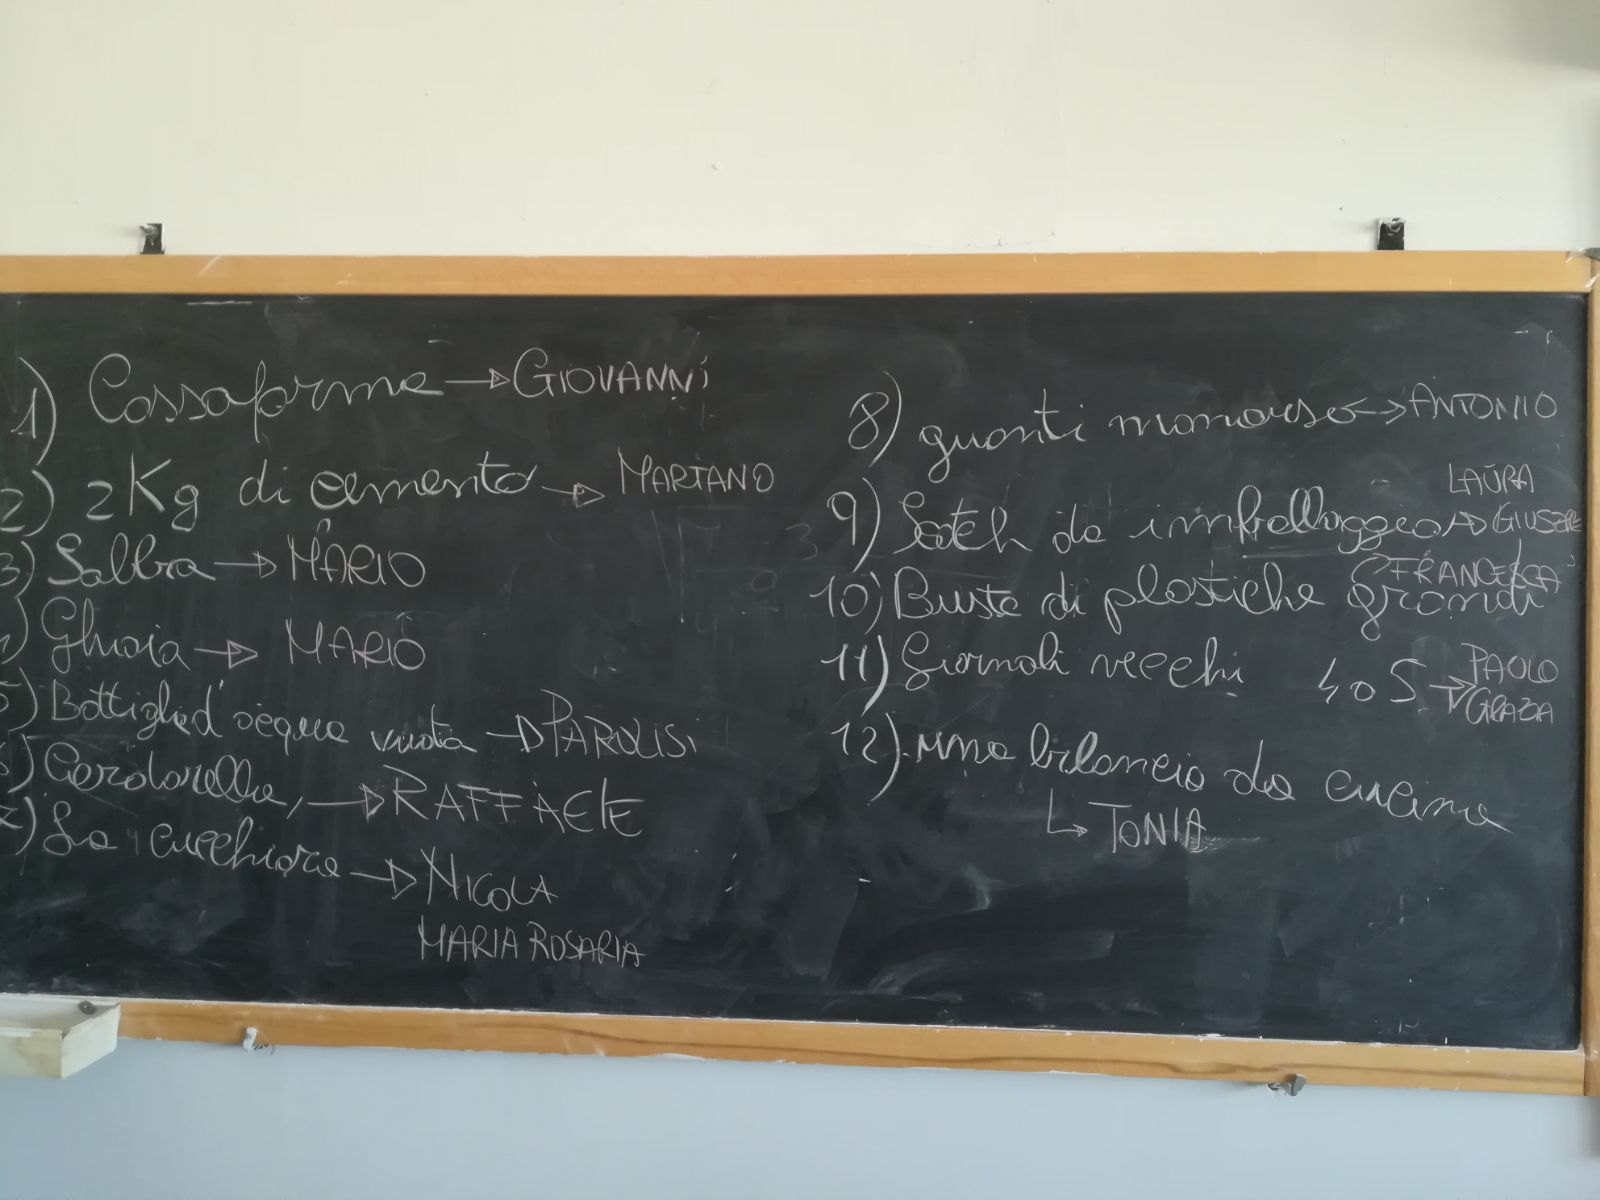 1) Cassaforma → GIOVANNI
2) 2Kg di cemento → MARIANO
3) Sabbia → MARIO
4) Ghiaia → MARIO
5) Bottiglia d'acqua vuota → PAROLISI
6) Cardarella, → RAFFAELE
7) La cucchiara → NICOLA
MARIA ROSARIA
8) guanti monouso → ANTONIO
LAURA
9) Scotch da imballaggio → GIUSEPPE
FRANCESCA
10) Buste di plastiche grandi
11) Giornali vecchi 4 o 5 → PAOLO
GRAZIA
12) una bilancia da cucina
↳ TONIA